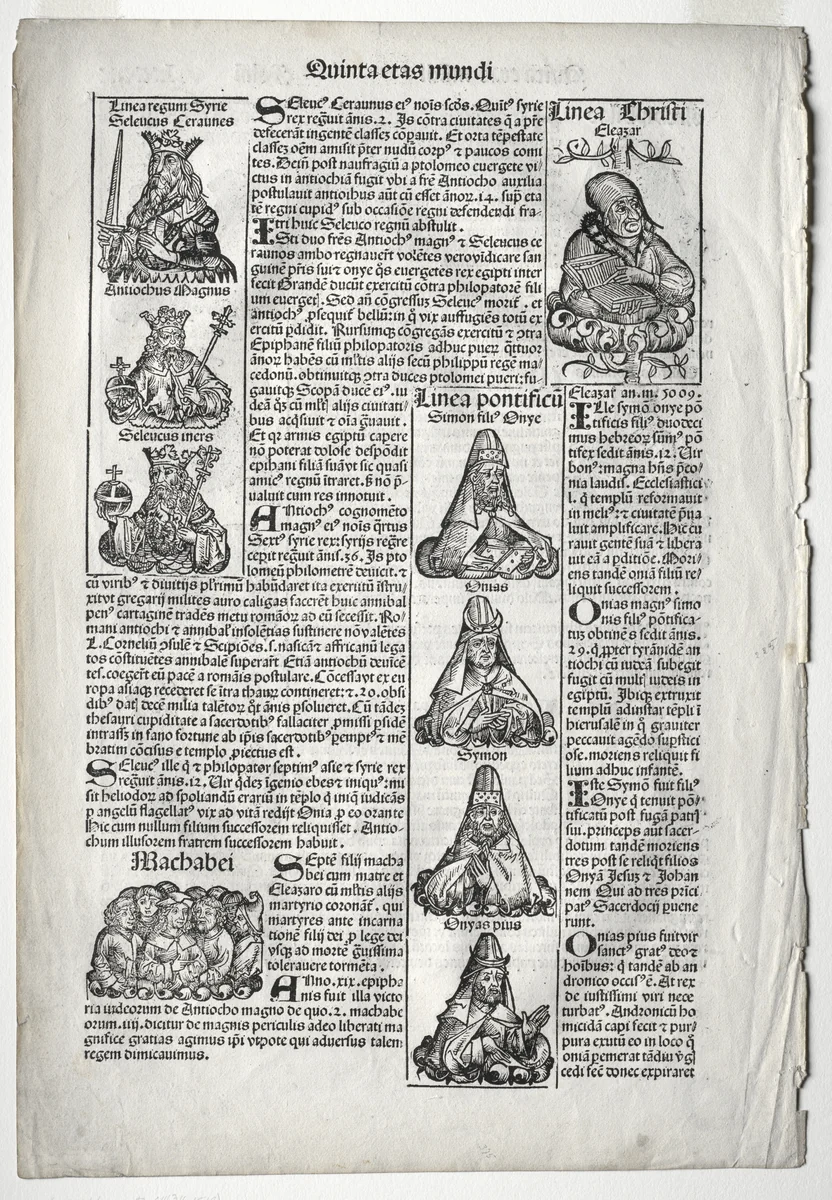 Quinta etas mundi
Linea regum Syrie
Seleucus Ceraunes
Antiochus Magnus
Seleucus iners
Seleucꝰ Ceraunus eiꝰ nois scds. Quitꝰ syrie
rex regnuit ānis.2. Is cōtra ciuitates q̄ a pr̄e
defecerāt ingentē classez cōpauit. Et orta tēpestate
classez oēm amisit pter nudū corpꝰ ⁊ paucos comi
tes. Dein post naufragiū a ptolomeo euergete vi⸗
ctus in antiochiā fugit vbi a frē Antiocho auxilia
postulauit antioihus aūt cū esset ānoꝝ.14. sup eta
tē regni cupidꝰ sub occasiōe regni defendendi fra⸗
tri huic Seleuco regnū abstulit.
Isti duo frēs Antiochꝰ magnꝰ ⁊ Seleucus ce
raunos ambo regnauerūt volētes vero vidicare san
guinē pr̄is sui ⁊ onye q̄s euergetes rex egipti inter
fecit Grandē ducūt exercitū cōtra philopatorē fili
um euergeꝭ. Sed añ cōgressuz Seleucꝰ morit̄. et
antiochꝰ ꝓsequit̄ bellū: in q̄ vix auffugiēs totū ex
ercitū ꝑdidit. Rursumqꝫ cōgregās exercitū ⁊ ꝯtra
Epiphanē filiū philopatoris adhuc pueꝝ qͣttuor
ānoꝝ habēs cū ml̄tis alijs secū philippū regē ma⸗
cedonū. obtinuitqꝫ ꝯtra duces ptolomei pueri: fu⸗
gauitqꝫ Scopā ducē eiꝰ. iu
deā qꝫ cū ml̄ꝭ alijs ciuitati⸗
bus acqsiuit ⁊ oīa gͣuauit.
Et qꝛ armis egiptū capere
nō poterat dolose despōdit
epihani filiā suā vt sic quasi
amicꝰ regnū ītraret. sꝫ nō p̄⸗
ualuit cum res innotuit.
Antiochꝰ cognomēto
magnꝰ eiꝰ nois qͣrtus
Sextꝰ syrie rex: syrijs regre
cepit regnuit ānis.36. Is pto
lomeū philometrē deuicit. ⁊
cū viribꝰ ⁊ diuitijs plꝛimū habūdaret ita exercitū īstru⸗
xit vt gregarij milites auro caligas facerēt huic annibal
penꝰ cartaginē tradēs metu romāoꝝ ad eū secessit. Ro⸗
mani antiochi ⁊ annibaꝭ insolētias sustinere nō valētes
L. Corneliū ꝯsulē ⁊ Scipiōes. s. nasicā ⁊ affricanū lega
tos cōstituētes annibalē superarūt Etiā antiochū deuīcē
tes. coegerūt eū pacē a romāis postulare. Cōcessa vt ex eu
ropa asiaqꝫ recederet se ītra thauꝝ contineret: ⁊.20. obsi
dibꝰ datꝭ decē milia talētoꝝ qͦt ānis ꝑsolueret. Cū tādez
thesauri cupiditate a sacerdotibꝰ fallaciter ꝓmissi psidē
intrassꝫ in fano fortune ab ip̄is sacerdotibꝰ ꝑemptꝰ ⁊ mē
bratim cōcisus e templo ꝓiectus est.
Seleucꝰ ille q̄ ⁊ philopator septimꝰ asie ⁊ syrie rex
regnuit ānis.12. Vir qͥdez īgenio ebes ⁊ iniquꝰ: mi
sit heliodoꝝ ad spoliandū erariū in tēplo q̄ iniq̄ iudicās
ꝑ angelū flagellatꝰ vix ad vitā redijt Onia ꝓ eo orante
Hic cum nullum filium successorem reliquisset. Antio⸗
chum illusorem fratrem successorem habuit.
Machabei
Septē filij macha
bei cum matre et
Eleazaro cū ml̄tis alijs
martyrio coronāt̄. qui
martyres ante incarna
tionē filij dei ꝓ lege dei
vsqꝫ ad mortē gͣuissima
tolerauere tormēta.
Anno.xix. epipha
nis fuit illa victo
ria iudeorum de Antiocho magno de quo.2. machabe
orum.iiij. dicitur de magnis periculis a deo liberati ma
gnifice gratias agimus ip̄i vtpote qui aduersus talem
regem dimicauimus.
Linea Christi
Eleazar
Linea pontificū
Simon filiꝰ Onye
Onias
Symon
Onyas pius
Eleazaꝝ an.m. 5009.
Ille symō onye pō
tificis filiꝰ duodeci
mus hebreoꝝ sūmꝰ pō
tifex sedit ānis.12. Vir
bonꝰ: magna hn̄s p̄co⸗
nia laudis. Ecclesiastici
l. q̄ templū reformauit
in meliꝰ: ⁊ ciuitatē p̄ua
luit amplificare. Hic cu
rauit gentē suā ⁊ libera
uit eā a pditiōe. Mori⸗
ens tandē oniā filiū re⸗
liquit successorem.
Onias magnꝰ simo
nis filiꝰ pōtifica⸗
tuz obtinēs sedit ānis.
29. q̄ ꝓpter tyrānidē an
tiochi cū iudeā subegit
fugit cū multꝭ iudeis in
egiptū. Ibiqꝫ extruxit
templū ad instar tēpli ī
hierusalē in q̄ grauiter
peccauit agēdo supsticī
ose. moriens reliquit fi
lium adhuc infantē.
Iste Symō fuit filiꝰ
Onye q̄ tenuit pō⸗
tificatū post fugā patrꝭ
sui. princeps aūt sacer⸗
dotum tandē moriens
tres post se reliqͥt filios
Onyā Jesuꝫ ⁊ Johan
nem Qui ad tres pͥnci⸗
patꝰ Sacerdocij ꝑuene
runt.
Onias pius fuit vir
sanctꝰ gratꝰ deo ⁊
hoībus: q̄ tandē ab an
dronico occisꝰ ē. At rex
de iustissimi viri nece
turbatꝰ. Andronicū ho
micidā capi fecit ⁊ pur⸗
pura exutū eo in loco q̄
oniā ꝑemerat tādiu vꝰgꝭ
cedi fec̄ donec expiraret